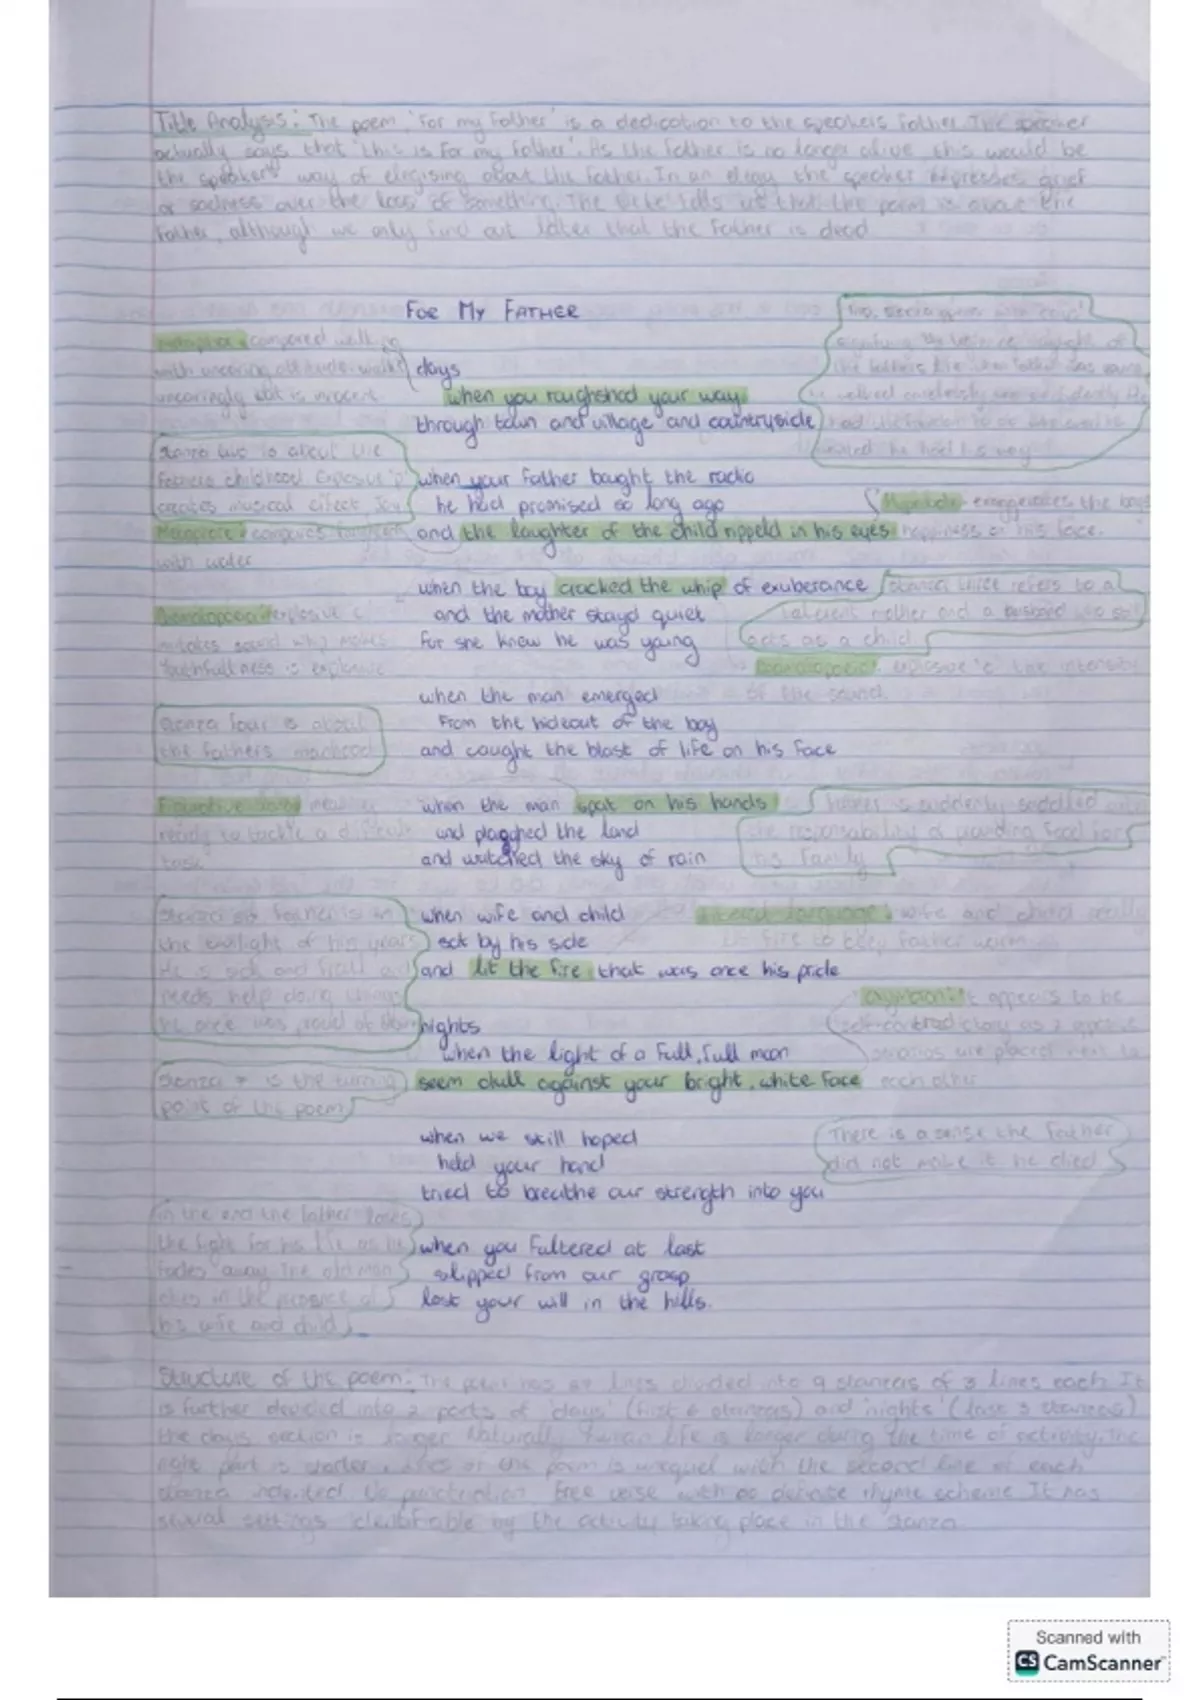 Title Analysis: The poem 'For my Father' is a dedication to the speakers Father. The speaker
actually says that 'this is for my father'. As the father is no longer alive this would be
the speakers way of elegising about the father. In an elegy the speaker expresses grief
or sadness over the loss of something. The title tells us that the poem is about the
father, although we only find out later that the father is dead
FOR MY FATHER
compared walking
days
with uncaring attitude.
when you roughshod your way
through town and village and countryside
had his way
Stanza two is about the
fathers childhood Explosive 'p'
creates musical effect Joy
when your father bought the radio
he had promised so long ago
Hyperbole exaggerates the boys
and the laughter of the child rippeld in his eyes
happiness on his face.
with water
when the boy cracked the whip of exuberance
Stanza three refers to a
and the mother stayd quiet
mother and a husband who still
for she knew he was young
acts as a child
youthfullness is explosive
explosive 'c' the intensity
of the sound.
when the man emerged
Stanza four is about
from the hideout of the boy
the fathers manhood
and caught the blast of life on his face
when the man spat on his hands
Father is suddenly saddled with
ready to tackle a difficult
task
and ploughed the land
the responsability of providing food for
and watched the sky of rain
his family
Stanza six father is in
when wife and child
language: wife and child really
the twilight of his years
sat by his side
lit fire to keep father warm
He is sick and frail and
and lit the fire that was once his pride
needs help doing things
he once was proud of
nights
it appears to be
when the light of a full, full moon
self-contradictory as 2 opposite
are placed next to
Stanza 7 is the turning
seem dull against your bright, white face
each other
point of the poem
when we still hoped
There is a sense the father
held your hand
did not make it he died
tried to breathe our strength into you
in the end the father loses
the fight for his life as he
when you faltered at last
fades away. The old man
slipped from our grasp
dies in the presence of
lost your will in the hills.
his wife and child
Structure of the poem: The poem has 27 lines divided into 9 stanzas of 3 lines each. It
is further devided into 2 parts of 'days' (first 6 stanzas) and 'nights' (last 3 stanzas)
the days section is longer Naturally human life is longer during the time of activity. The
night part is shorter. Lines of the poem is unequel with the second line of each
stanza indented No punctuation Free verse with no definite rhyme scheme It has
several settings identifiable by the activity taking place in the stanza
Scanned with
CS CamScanner